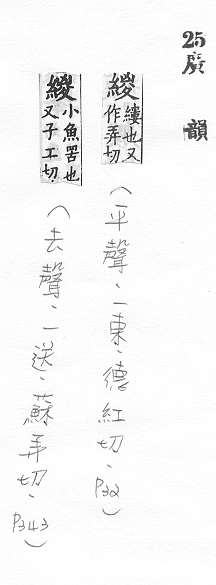 25廣韻
緵 縷也又作弄切
(平聲、一東、德紅切、P32)
緵 小魚罟也又子工切
(去聲、一送、蘇弄切、P343)